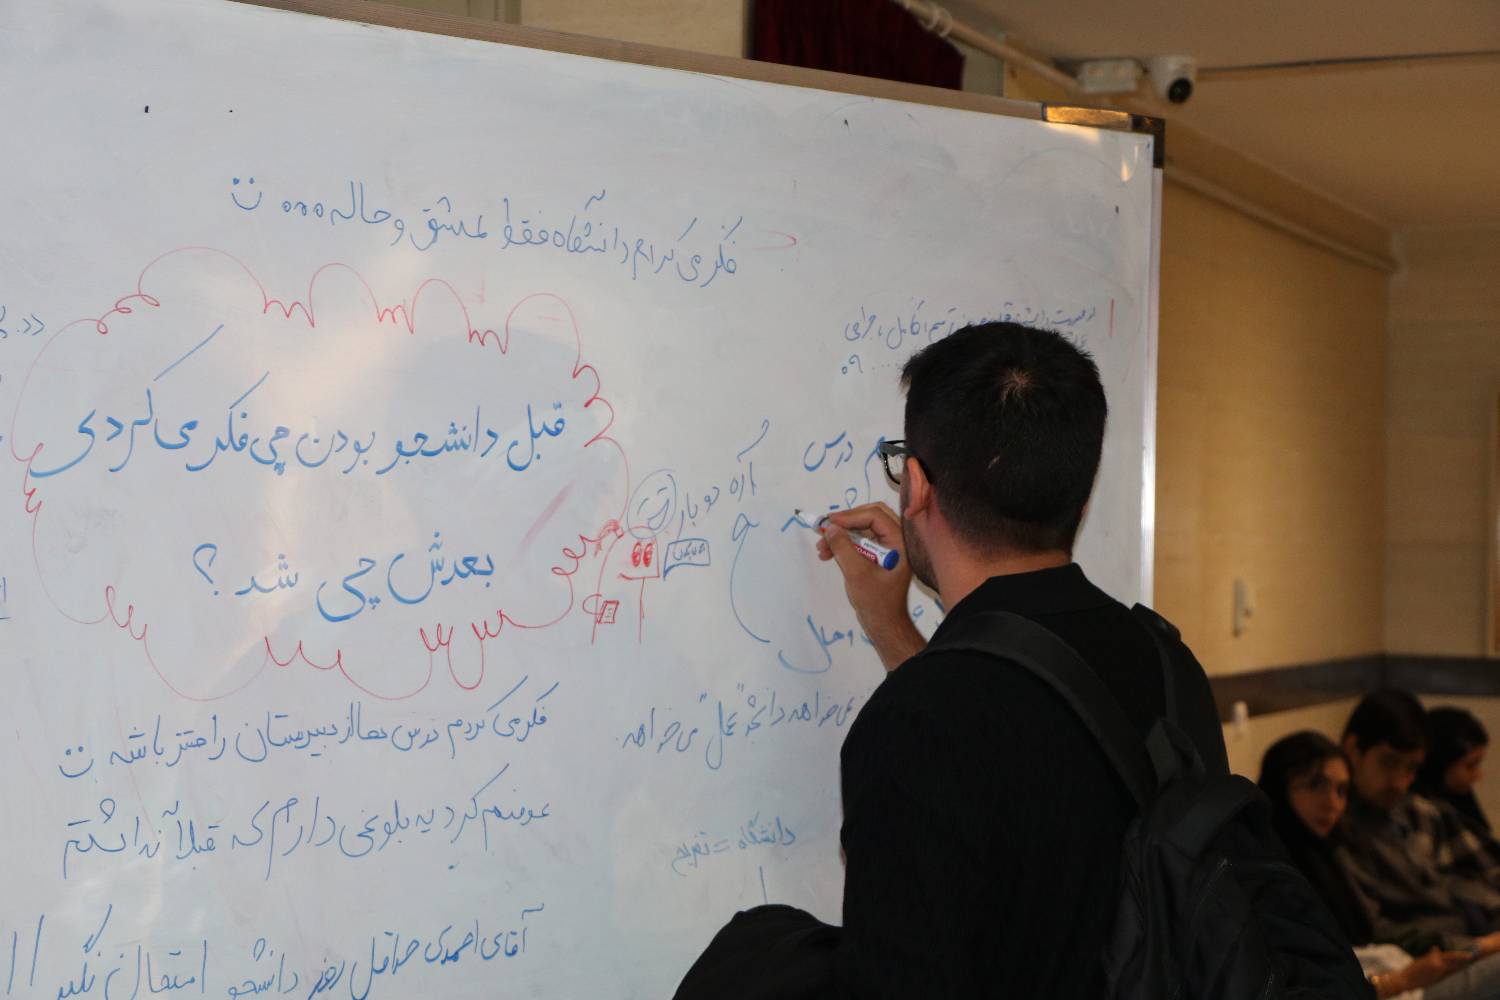 فکر می کردم دانشگاه فقط عشق و حاله ...
قبل دانشجو بودن چی فکر می کردی
بعدش چی شد ؟
درس
آره دوبار
و حال
فکر می کردم درس ها از دبیرستان راحتتر باشه
عوضم کرد یه بلوغی دارم که قبلاً نداشتم
نمی خواهد دانشجو "عمل" می خواهد
دانشگاه = تفریح
آقای احمدی حداقل روز دانشجو امتحان نگیر !!
BOARD